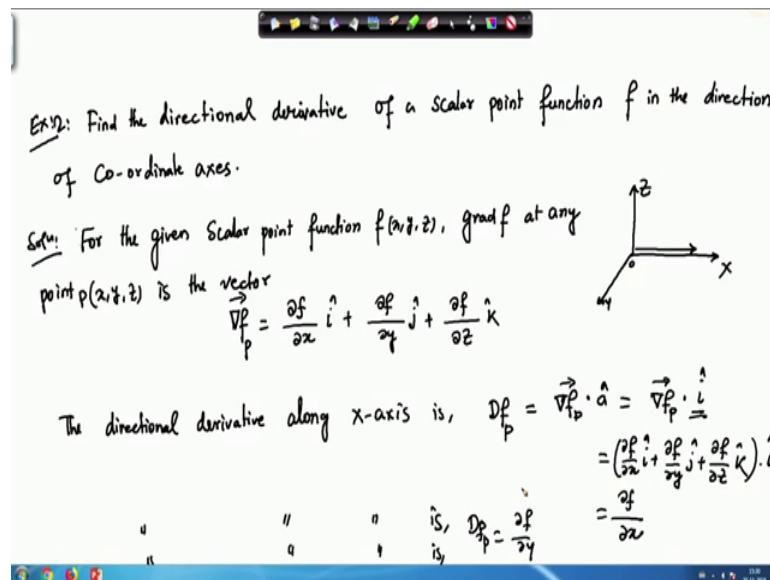 Ex:2: Find the directional derivative of a scalar point function f in the direction
of Co-ordinate axes.
Soln: For the given scalar point function f(x,y,z), grad f at any
point p(x,y,z) is the vector
∇f⃗_p = ∂f/∂x î + ∂f/∂y ĵ + ∂f/∂z k̂
Z
0
X
Y
The directional derivative along x-axis is, Df_p = ∇f⃗_p · â = ∇f⃗_p · î
= (∂f/∂x î + ∂f/∂y ĵ + ∂f/∂z k̂) · î
= ∂f/∂x
" " " is, Df_p = ∂f/∂y
" " " is,
15:30